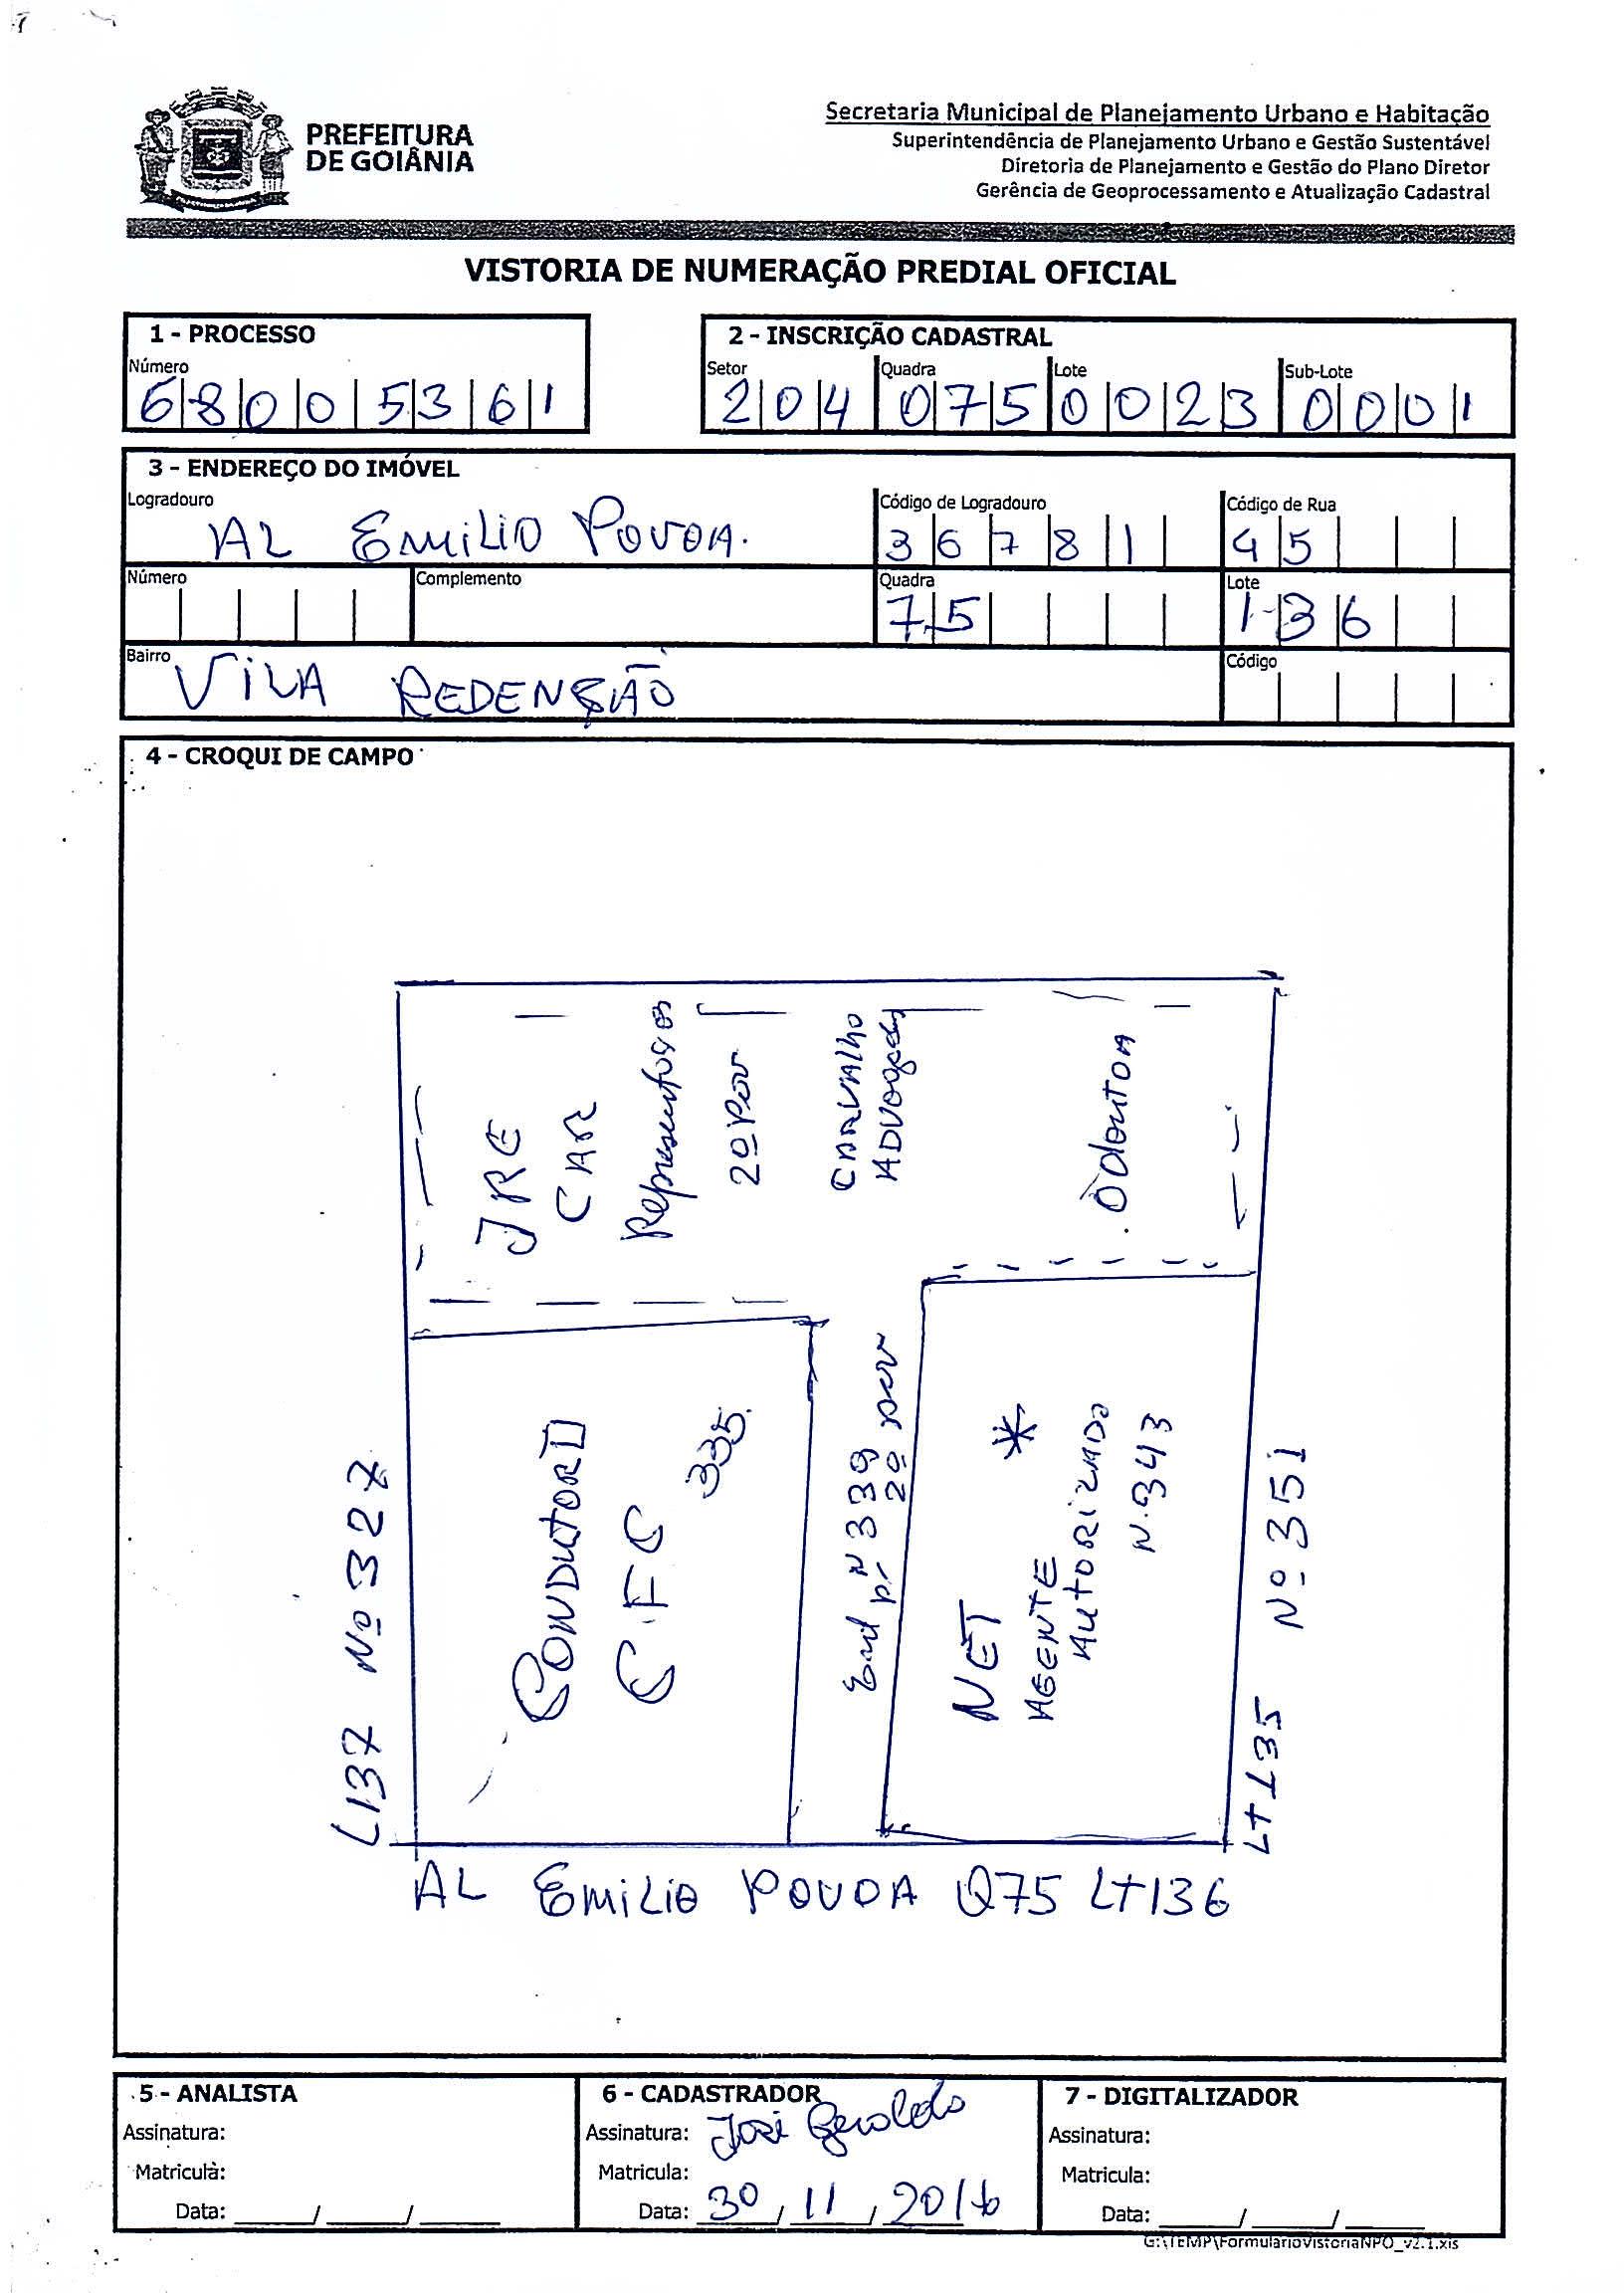 PREFEITURA
DE GOIÂNIA
Secretaria Municipal de Planejamento Urbano e Habitação
Superintendência de Planejamento Urbano e Gestão Sustentável
Diretoria de Planejamento e Gestão do Plano Diretor
Gerência de Geoprocessamento e Atualização Cadastral
VISTORIA DE NUMERAÇÃO PREDIAL OFICIAL
1 - PROCESSO
Número
68005361
2 - INSCRIÇÃO CADASTRAL
Setor Quadra Lote Sub-Lote
204 075 0023 0001
3 - ENDEREÇO DO IMÓVEL
Logradouro Código de Logradouro Código de Rua
AL EMILIO POVOA. 36781 45
Número Complemento Quadra Lote
75 136
Bairro Código
VILA REDENÇÃO
4 - CROQUI DE CAMPO
JRE
CAR
2º Pav
CARVALHO
ODONTOA
CONDUTOR
C.F.C
335.
Nº 339
2º pav
NET
AGENTE
AUTORIZADO
N.343
L137 Nº 327
LT 135 Nº 351
AL EMILIO POVOA Q75 LT136
5 - ANALISTA
Assinatura:
Matricula:
Data: / /
6 - CADASTRADOR
Assinatura: José Geraldo
Matricula:
Data: 30/11/2016
7 - DIGITALIZADOR
Assinatura:
Matricula:
Data: / /
G:\TEMP\FormularioVistoriaNPO_v2.1.xls